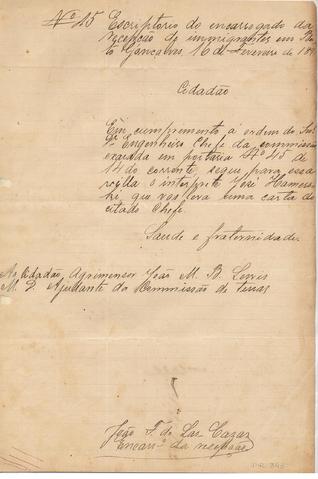 Nº 15 Escriptorio do encarregado da
recepção de immigrantes em Ben
to Gonçalves, 16 de Fevereiro de 189
Cidadão
Em cumprimento á ordem do
Engenheiro Chefe da commissão
exarada em portaria Nº 45 de
14 do corrente, segue para essa
o interprete José
que vos leva uma carta do
citado Chefe.
Saude e fraternidade.
Ao Cidadão Agrimensor João M. B.
M. D. Ajudante da Commissão de terras
João F. de Las Cazas
Encarº da recepção